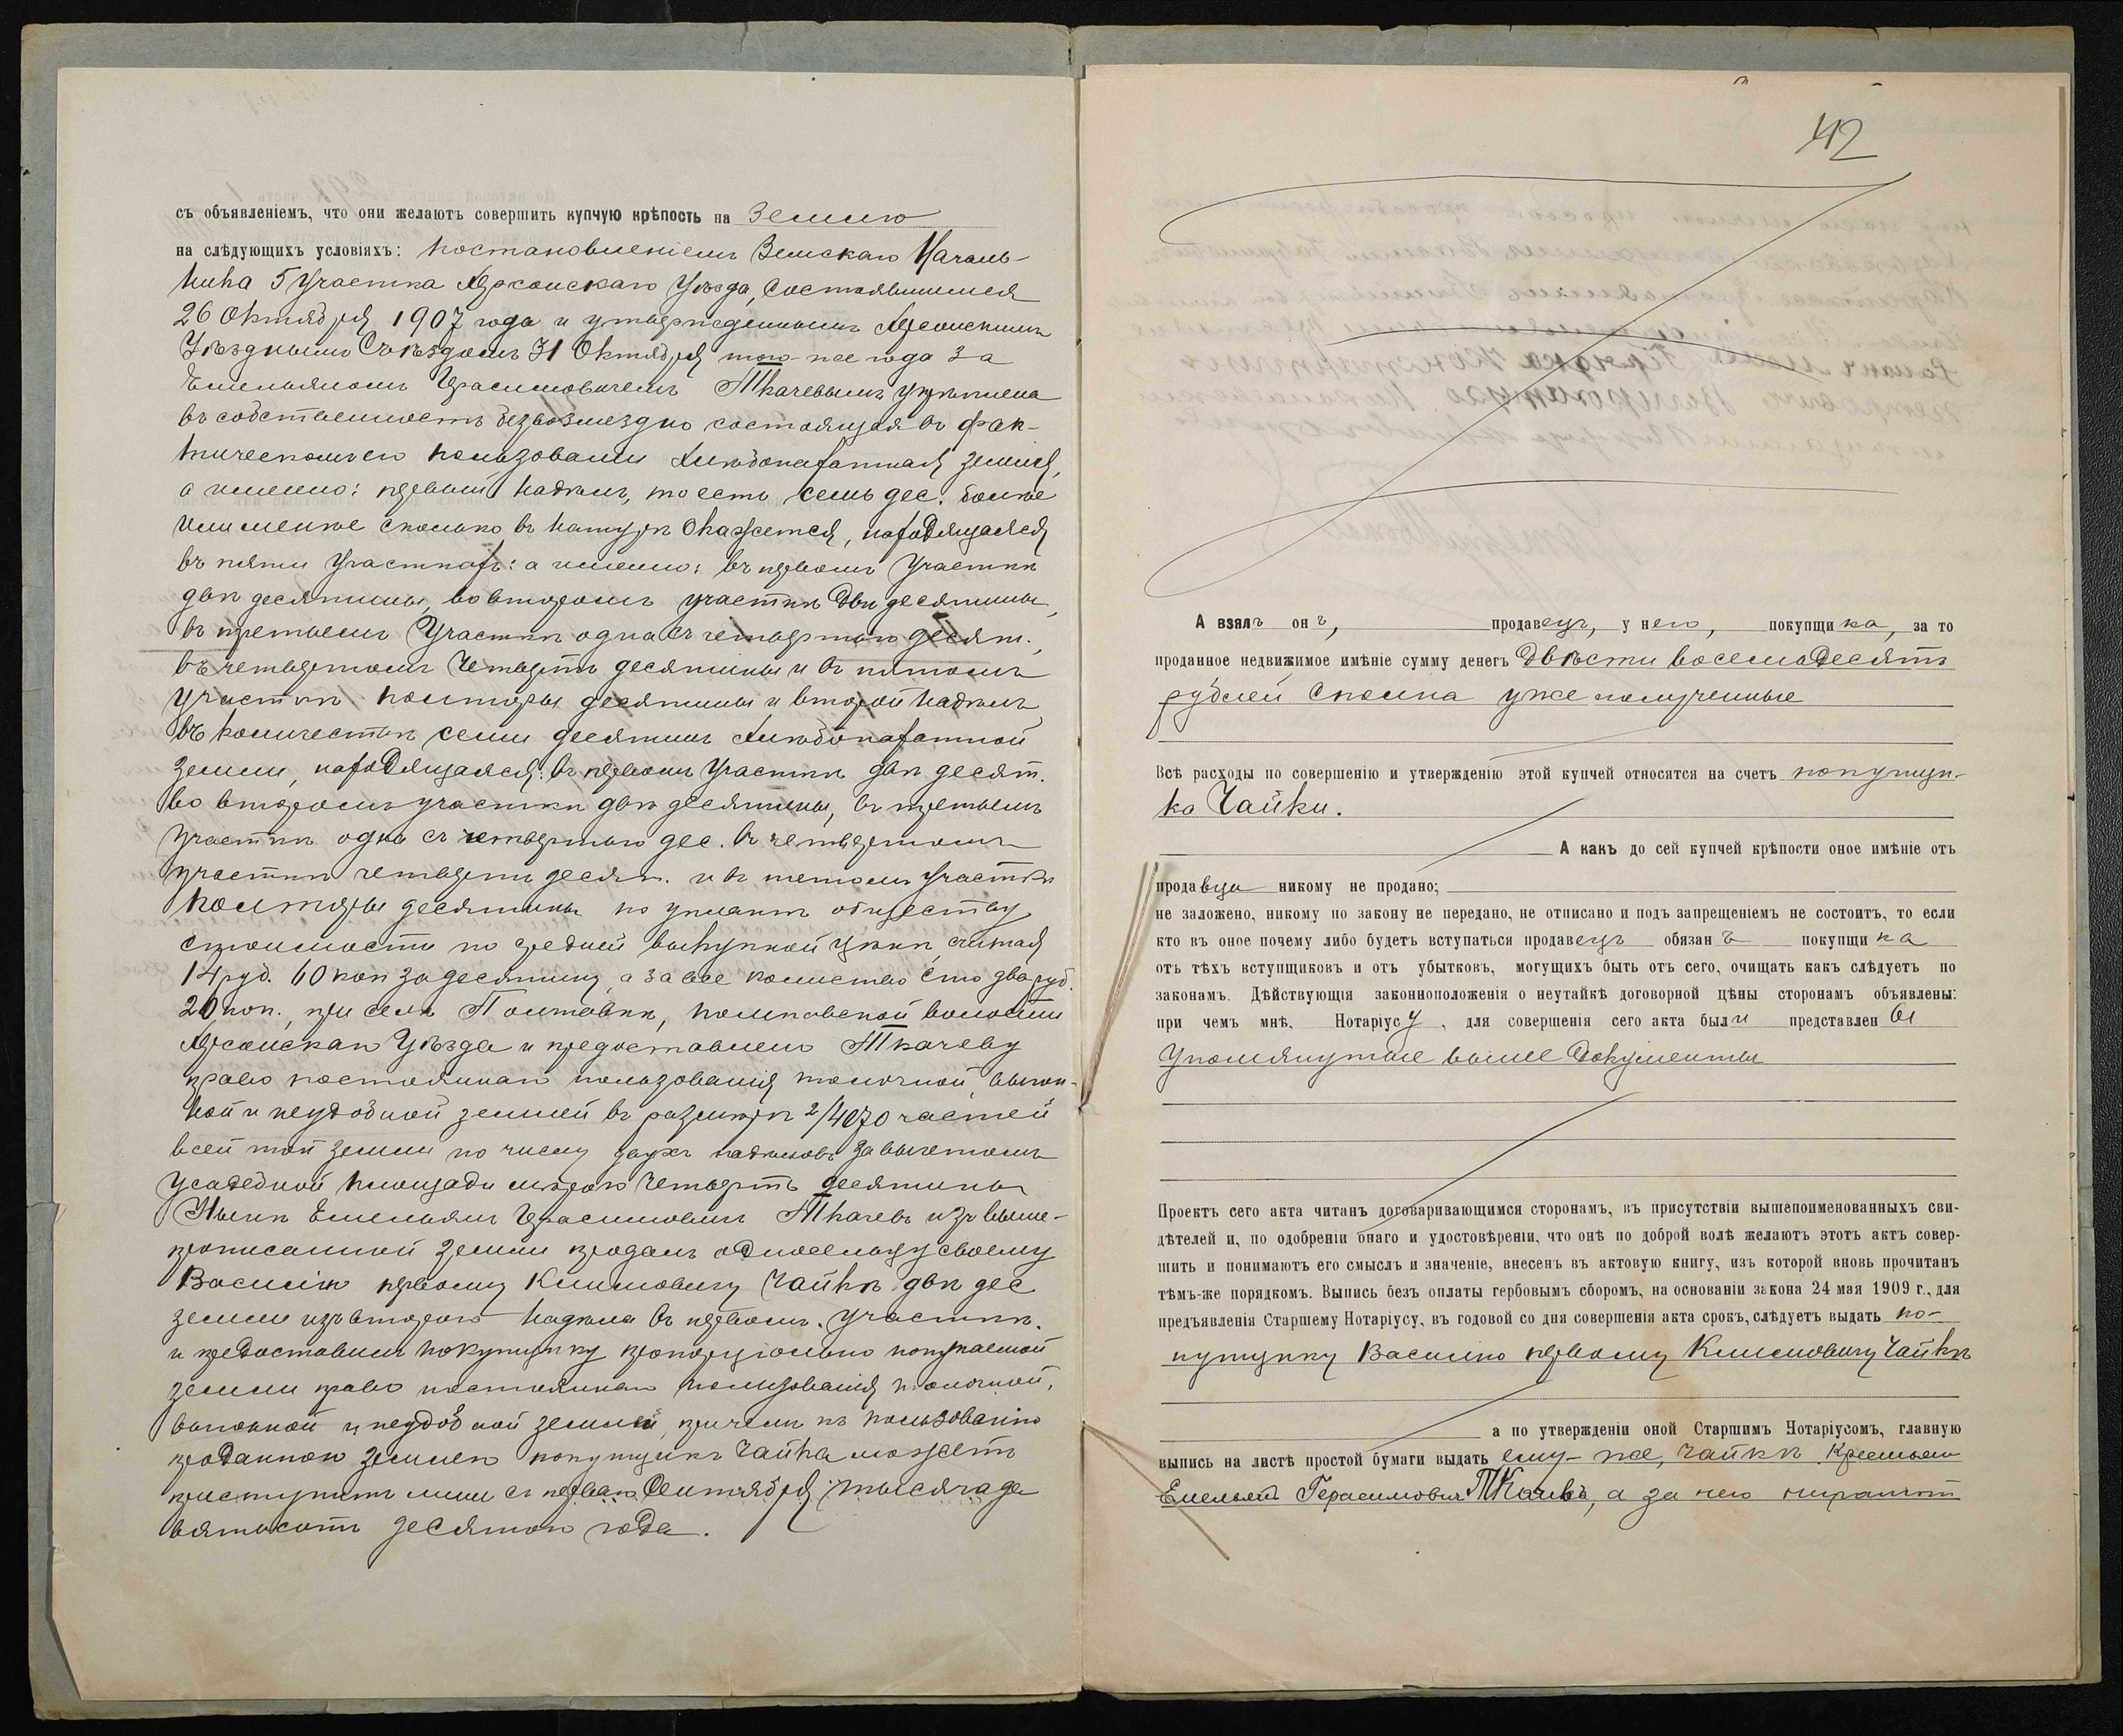 съ объявленіемъ, что они желаютъ совершить купчую крѣпость на землю
на слѣдующихъ условіяхъ: постановленіемъ Земскаго Началь-
ника 5 участка Херсонскаго уѣзда, состоявшимся
26 Октября 1907 года и утвержденнымъ Херсонскимъ
Уѣзднымъ Съѣздомъ 31 Октября того-же года за
Емельяномъ Герасимовичемъ Ткачевымъ укрѣплена
въ собственность безвозмездно состоящая въ фак-
тическомъ его пользованіи хлѣбопахатная земля,
а именно: первый надѣлъ, то есть семь дес. болѣе
или менѣе сколько въ натурѣ окажется, находящаяся
въ пяти участкахъ: а именно: въ первомъ участкѣ
двѣ десятины, во второмъ участкѣ двѣ десятины,
въ третьемъ участкѣ одна съ четвертью десят.,
въ четвертомъ четверть десятины и въ пятомъ
участкѣ полторы десятины и второй надѣлъ
въ количествѣ семи десятинъ хлѣбопахатной
земли, находящаяся: въ первомъ участкѣ двѣ десят.
во второмъ участкѣ двѣ десятины, въ третьемъ
участкѣ одна съ четвертью дес. въ четвертомъ
участкѣ четверть десят. и въ пятомъ участкѣ
полторы десятины по уплатѣ обществу
стоимости по средней выкупной цѣнѣ, считая
14 руб. 60 коп за десятину, а за все количество сто два руб.
20 коп., при селѣ Полтавкѣ, волости
Херсонскаго Уѣзда и предоставлено Ткачеву
право постояннаго пользованія толочной, выгон-
ной и неудобной землей въ размѣрѣ 2/4070 частей
всей той земли по числу двухъ надѣловъ за вычетомъ
усадебной площади мѣрою четверть десятины
Нынѣ Емельянъ Герасимовичъ Ткачевъ изъ выше-
прописанной земли продалъ односельцу своему
Василію первому Климовичу Чайкѣ двѣ дес
земли изъ второго надѣла въ первомъ участкѣ.
и предоставилъ покупщику пропорціонально покупаемой
земли право постояннаго пользованія толочной,
выгонной и неудобной землей, причемъ къ пользованію
проданною землею покупщикъ Чайка можетъ
приступить лишь съ перваго Сентября тысяча де
вятьсотъ десятаго года.
42
А взялъ онъ, продавецъ, у него, покупщика, за то
проданное недвижимое имѣніе сумму денегъ двѣсти восемьдесятъ
рублей сполна уже полученные
Всѣ расходы по совершенію и утвержденію этой купчей относятся на счетъ покупщи-
ка Чайки.
А какъ до сей купчей крѣпости оное имѣніе отъ
продавца никому не продано;
не заложено, никому по закону не передано, не отписано и подъ запрещеніемъ не состоитъ, то если
кто въ оное почему либо будетъ вступаться продавецъ обязанъ покупщика
отъ тѣхъ вступщиковъ и отъ убытковъ, могущихъ быть отъ сего, очищать какъ слѣдуетъ по
законамъ. Дѣйствующія законноположенія о неутайкѣ договорной цѣны сторонамъ объявлены:
при чемъ мнѣ, Нотаріусу, для совершенія сего акта были представлены
упомянутые выше документы
Проектъ сего акта читанъ договаривающимся сторонамъ, въ присутствіи вышепоименованныхъ сви-
дѣтелей и, по одобреніи онаго и удостовѣреніи, что онѣ по доброй волѣ желаютъ этотъ актъ совер-
шить и понимаютъ его смыслъ и значеніе, внесенъ въ актовую книгу, изъ которой вновь прочитанъ
тѣмъ-же порядкомъ. Выпись безъ оплаты гербовымъ сборомъ, на основаніи закона 24 мая 1909 г., для
предъявленія Старшему Нотаріусу, въ годовой со дня совершенія акта срокъ, слѣдуетъ выдать по-
купщику Василію первому Климовичу Чайкѣ
а по утвержденіи оной Старшимъ Нотаріусомъ, главную
выпись на листѣ простой бумаги выдать ему-же, Чайкѣ Крестьянъ
Емельянъ Герасимовичъ Ткачевъ, а за него